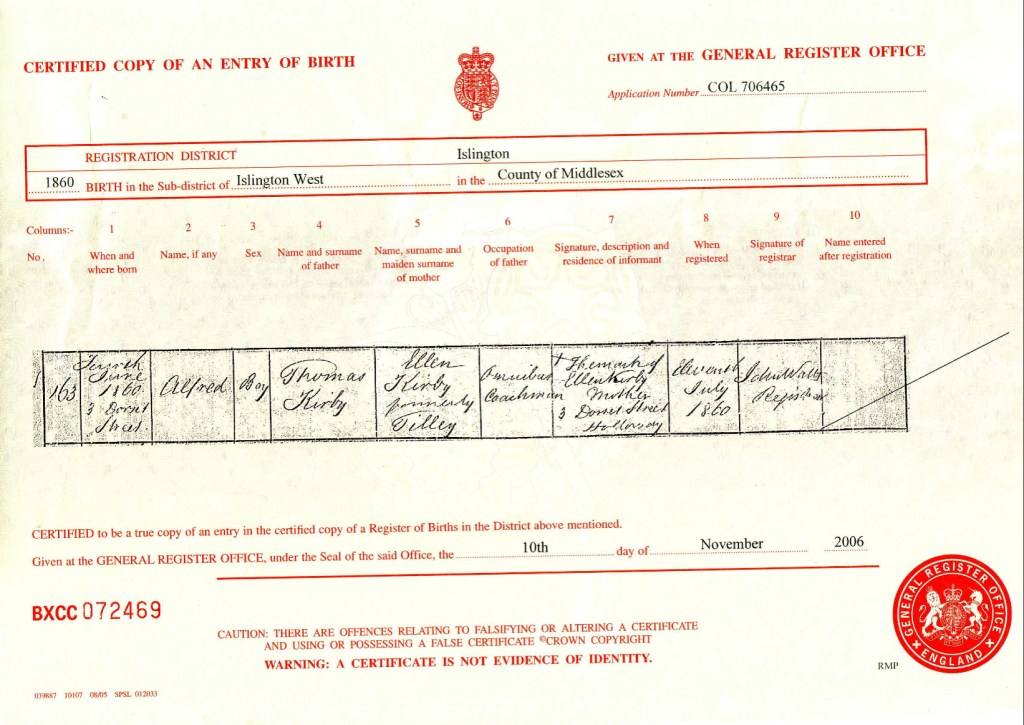 CERTIFIED COPY OF AN ENTRY OF BIRTH
GIVEN AT THE GENERAL REGISTER OFFICE
Application Number COL 706465
REGISTRATION DISTRICT Islington
1860 BIRTH in the Sub-district of Islington West in the County of Middlesex
Columns:- 1 2 3 4 5 6 7 8 9 10
No. When and where born
Name, if any
Sex
Name and surname of father
Name, surname and maiden surname of mother
Occupation of father
Signature, description and residence of informant
When registered
Signature of registrar
Name entered after registration
163
June
1860
3 Dorset
Street
Alfred
Boy
Thomas
Kirby
Ellen
Kirby
formerly
Tilley
Omnibus
Coachman
X The mark of
Ellen Kirby
Mother
3 Dorset Street
Holloway
Eleventh
July
1860
John Watts
Registrar
CERTIFIED to be a true copy of an entry in the certified copy of a Register of Births in the District above mentioned.
Given at the GENERAL REGISTER OFFICE, under the Seal of the said Office, the 10th day of November 2006
BXCC 072469
CAUTION: THERE ARE OFFENCES RELATING TO FALSIFYING OR ALTERING A CERTIFICATE
AND USING OR POSSESSING A FALSE CERTIFICATE ©CROWN COPYRIGHT
WARNING: A CERTIFICATE IS NOT EVIDENCE OF IDENTITY.
GENERAL REGISTER OFFICE
ENGLAND
RMP
039887 10107 08/05 SPSL 012033